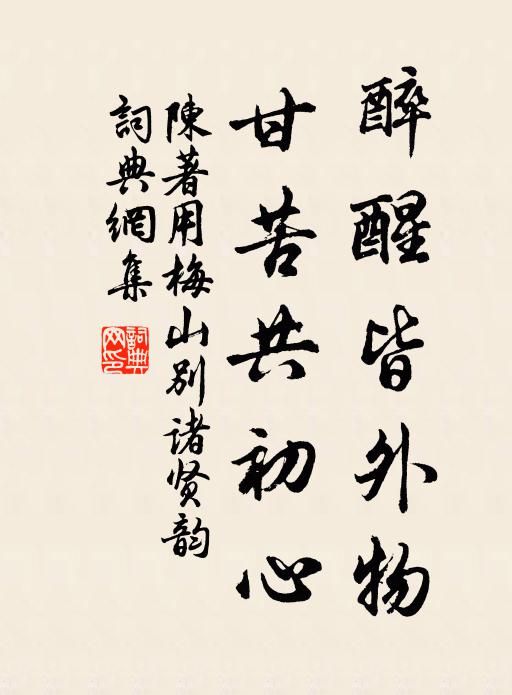 醉醒皆外物
甘苦共初心
陳著用梅山别诸贤韵
詞典網集
詞典網印